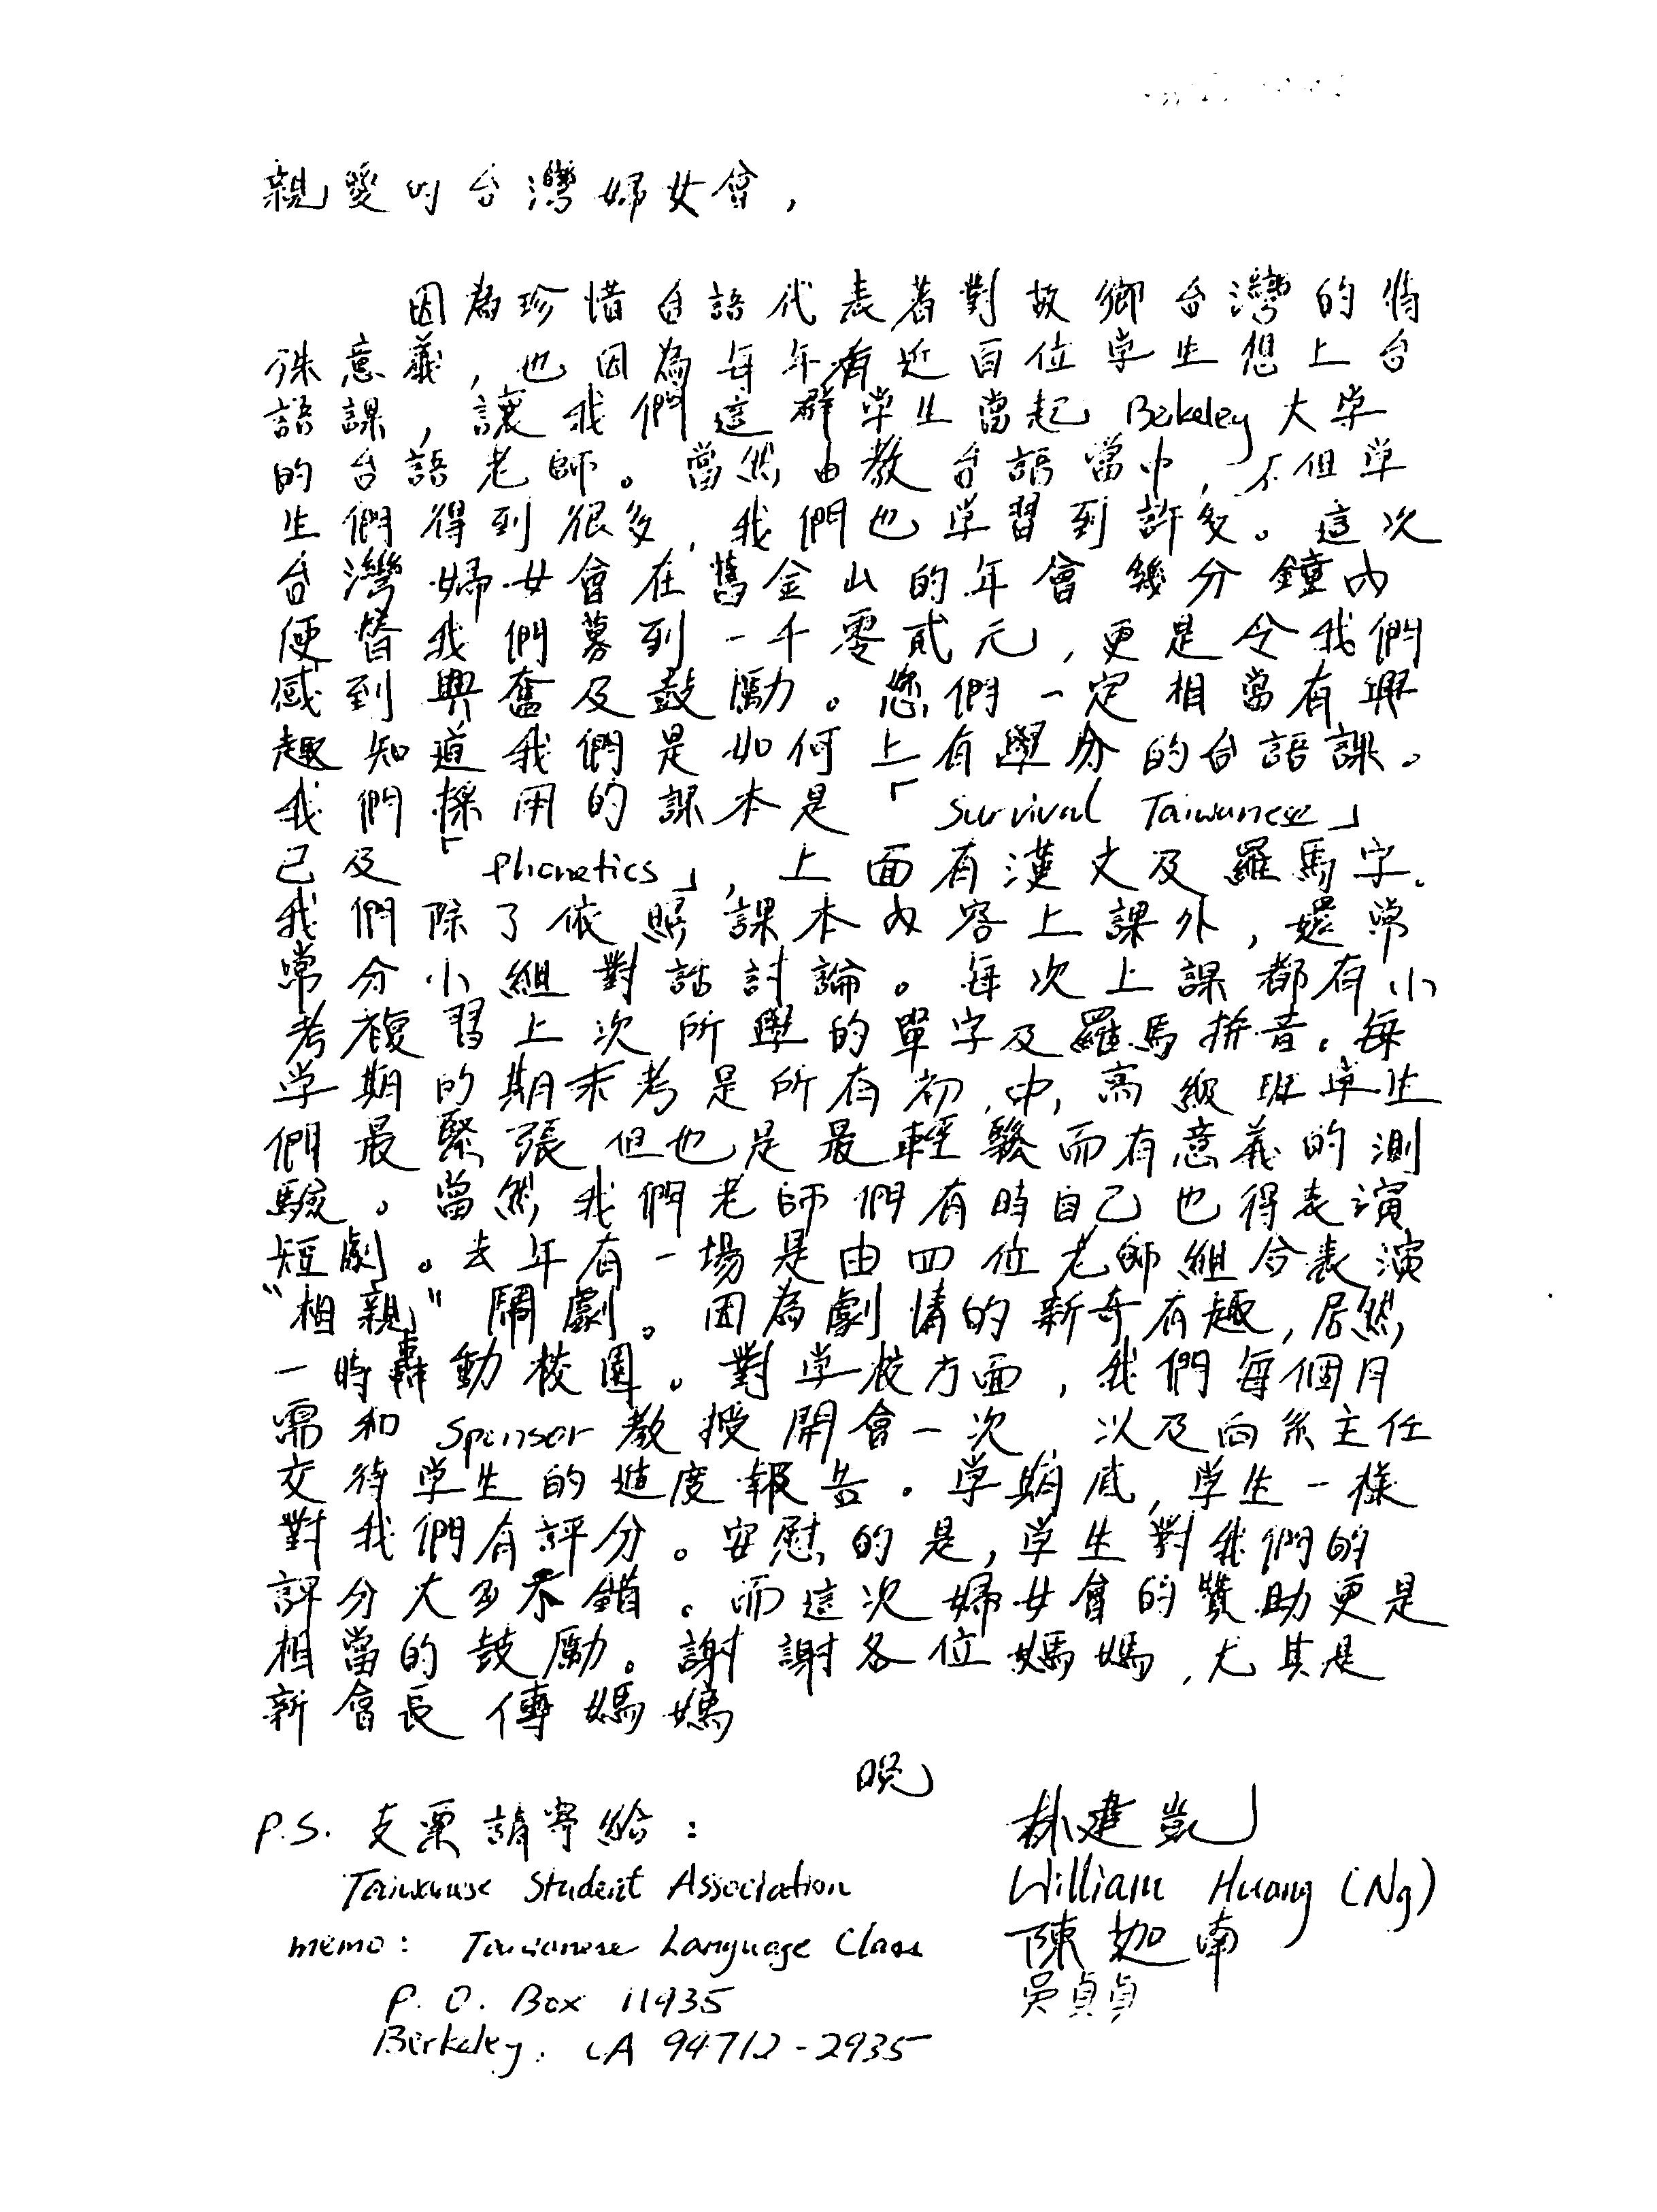 親愛的台灣婦女會,
因為珍惜台語代表著對故鄉台灣的特
殊意義,也因為每年有近百位学生想上台
語課,讓我們這群学生當起 Berkeley 大学
的台語老師。當然由教台語當中,不但学
生們得到很多,我們也学習到許多。這次
台灣婦女會在舊金山的年會幾分鐘內
便替我們募到一千零貳元,更是令我們
感到興奮及鼓勵。您們一定相當有興
趣知道我們是如何上有學分的台語課。
我們採用的課本是「Survival Taiwanese」
已及「Phonetics」,上面有漢文及羅馬字.
我們除了依照課本內容上課外,還常
常分小組對話討論。每次上課都有小
考複習上次所學的單字及羅馬拚音。每
学期的期末考是所有初,中,高級班学生
們最緊張但也是最輕鬆而有意義的測
驗。當然我們老師們有時自己也得表演
短劇。去年有一場是由四位老師組合表演
"相親"鬧劇。因為劇情的新奇有趣,居然
一時轟動校園。對学校方面,我們每個月
需和 Sponsor 教授開會一次,以及向系主任
交待学生的進度報告。学期底,学生一樣
對我們有評分。安慰的是,学生對我們的
評分大多不錯。而這次婦女會的贊助更是
相當的鼓勵。謝謝各位媽媽,尤其是
新會長傅媽媽
晚
林建凱
P.S. 支票請寄給:
Taiwanese Student Association
William Huang (Ng)
memo: Taiwanese Language Class
陳迦南
P. O. Box 11935
吳貞貞
Berkeley, CA 94712-2935